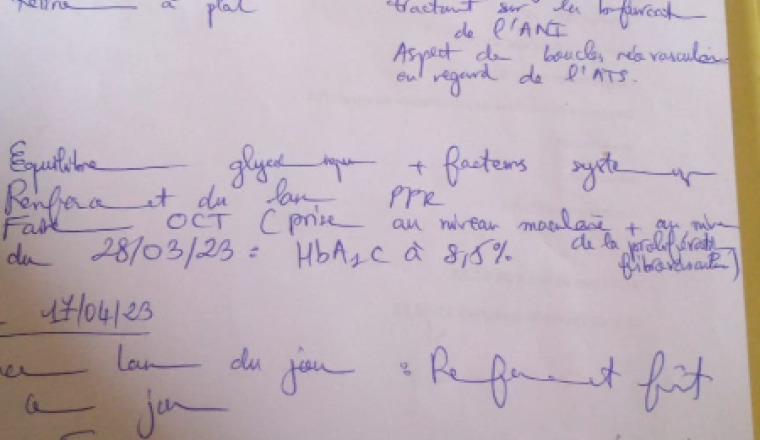 à plat
tractant sur la bifurcat
de l'ANI
Aspect de boucles néovasculaire
en regard de l'ATS.
Equilibre glycémique + facteurs syst
Renforcement du laser PPR
Faire OCT (prise au niveau maculaire + au nive
de la prolifération
fibrovasculaire)
du 28/03/23 = HbA1C à 8,5%
17/04/23
du jour : Renforcement fait
ce jour